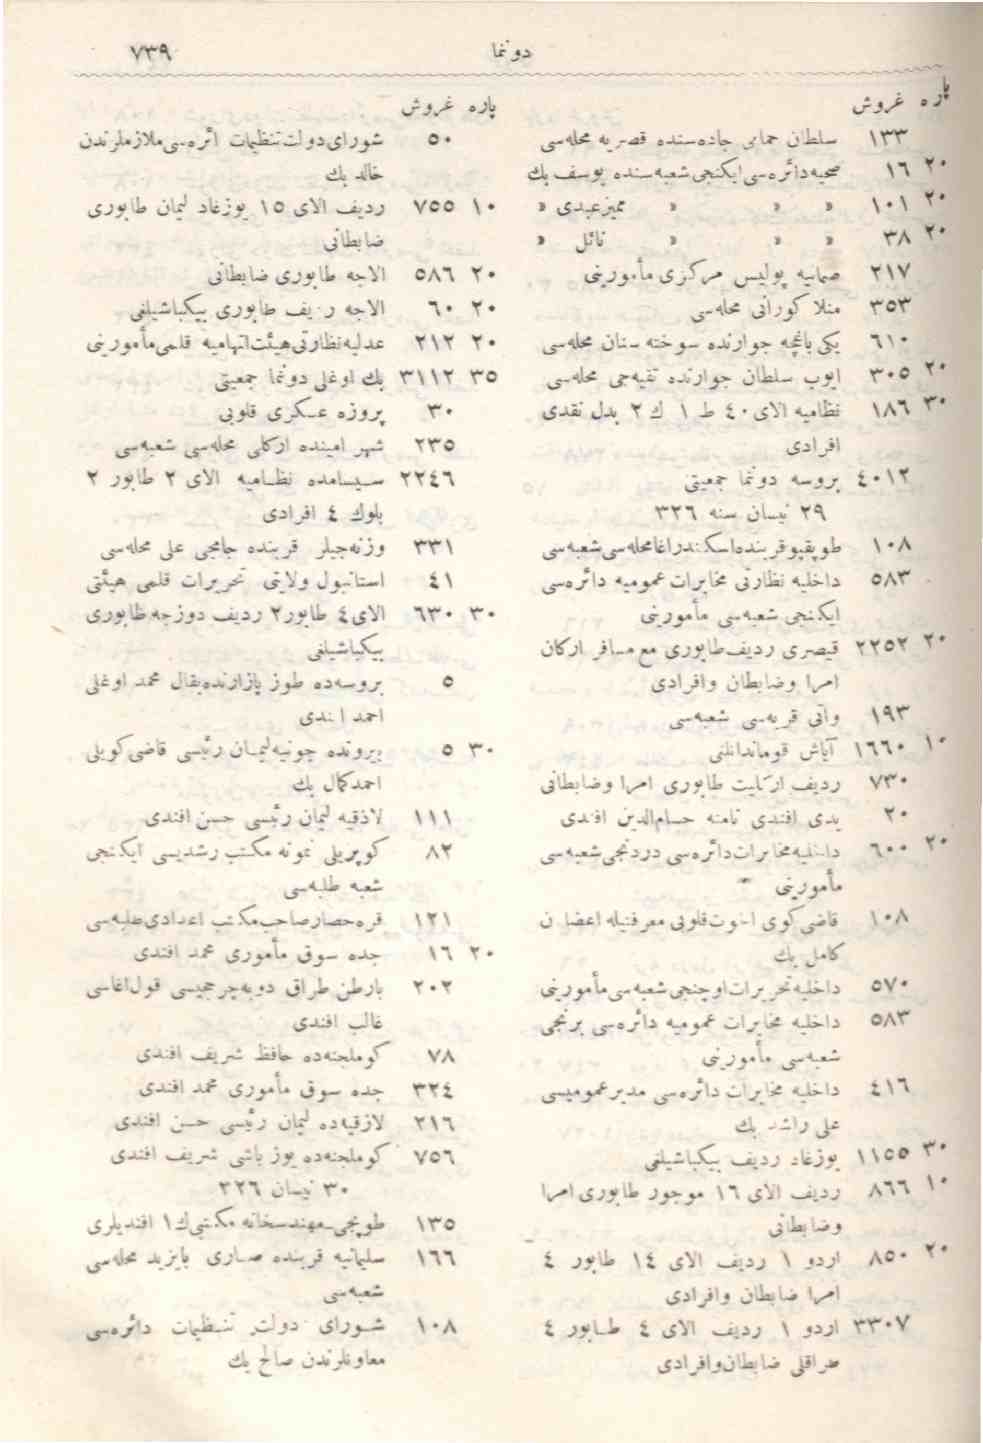 دونما
٧٣٩
پاره غروش
١٣٣ سلطان حمامی جاده‌سنده قصریه محله‌سی
٢٠ ١٦ صحیه دائره‌سی ایکنجی شعبه‌سنده یوسف بك
٢٠ ١٠١ » » » ممیز عبدی »
٢٠ ٣٨ » » » نائل »
٢١٧ ضمانیه پولیس مرکزی مأمورینی
٣٥٣ منلا کورانی محله‌سی
٦١٠ یکی باغچه جوارنده سوخته سنان محله‌سی
٢٠ ٣٠٥ ایوب سلطان جوارنده تقیه‌جی محله‌سی
٣٠ ١٨٦ نظامیه الای ٤٠ ط ١ ك ٢ بدل نقدی
افرادی
٤٠١٢ بروسه دونما جمعیتی
٢٩ نیسان سنه ٣٢٦
١٠٨ طوپقپو قربنده اسکندراغا محله‌سی شعبه‌سی
٥٨٣ داخلیه نظارتی مخابرات عمومیه دائره‌سی
ایکنجی شعبه‌سی مأمورینی
٢٠ ٢٢٥٢ قیصری ردیف طابوری مع مسافر ارکان
امرا وضابطان وافرادی
١٩٣ وانی قریه‌سی شعبه‌سی
١٠ ١٦٦٠ آیاش قومانداناغی
٧٣٠ ردیف ارکلیت طابوری امرا وضابطانی
٢٠ یدی افندی نامنه حسام‌الدین افندی
٢٠ ٦٠٠ داخلیه مخابرات دائره‌سی دردنجی شعبه‌سی
مأمورینی
١٠٨ قاضی‌کوی اخوت قلوبی معرفتیله اعضادن
کامل بك
٥٧٠ داخلیه تحریرات اوچنجی شعبه‌سی مأمورینی
٥٨٣ داخلیه مخابرات عمومیه دائره‌سی برنجی
شعبه‌سی مأمورینی
٤١٦ داخلیه مخابرات دائره‌سی مدیر عمومیسی
علی راشد بك
٣٠ ١١٥٥ یوزغاد ردیف بیکباشیلغی
١٠ ٨٦٦ ردیف الای ١٦ موجور طابوری امرا
وضابطانی
٢٠ ٨٥٠ اردو ١ ردیف الای ١٤ طابور ٤
امرا ضابطان وافرادی
٣٣٠٧ اردو ١ ردیف الای ٤ طابور ٤
ضابطان وافرادی
پاره غروش
٥٠ شورای دولت تنظیمات دائره‌سی ملازملرندن
خالد بك
١٠ ٧٥٥ ردیف الای ١٥ یوزغاد لیمان طابوری
ضابطانی
٢٠ ٥٨٦ الاجه طابوری ضابطانی
٢٠ ٦٠ الاجه ردیف طابوری بیکباشیلغی
٢٠ ٢١٢ عدلیه نظارتی هیئت اتهامیه قلمی مأمورینی
٣٥ ٣١١٢ بك اوغلی دونما جمعیتی
٣٠ پروزه عسکری قلوبی
٢٣٥ شهر امینده ارکلی محله‌سی شعبه‌سی
٢٢٤٦ سیسامده نظامیه الای ٢ طابور ٢
بلوك ٤ افرادی
٣٣١ وزنه‌جیلر قربنده جامجی علی محله‌سی
٤١ استانبول ولایتی تحریرات قلمی هیئتی
٣٠ ٦٣٠ الای ٤ طابور ٢ ردیف دوزجه طابوری
بیکباشیلغی
٥ بروسه‌ده طوز پازارنده بقال محمد اوغلی
احمد افندی
٣٠ ٥ بیرونده چونیه لیمان رئیسی قاضی کویلی
احمد کمال بك
١١١ لاذقیه لیمان رئیسی حسن افندی
٨٢ کوپریلی نمونه مکتب رشدیسی ایکنجی
شعبه طلبه‌سی
١٢١ قره‌حصار صاحب مکتب اعدادی طلبه‌سی
٢٠ ١٦ جده سوق مأموری محمد افندی
٢٠٢ بارطن طراق دوبه‌چرجیسی قول‌اغاسی
غالب افندی
٧٨ کوملجنه‌ده حافظ شریف افندی
٣٢٤ جده سوق مأموری محمد افندی
٢١٦ لازقیه‌ده لیمان رئیسی حسن افندی
٧٥٦ کوملجنه‌ده یوزباشی شریف افندی
٣٠ نیسان ٣٢٦
١٣٥ طوپچی مهندسخانه مکتبی ك ١ افندیلری
١٦٦ سلیمانیه قربنده صاری بایزید محله‌سی
شعبه‌سی
١٠٨ شورای دولت تنظیمات دائره‌سی
معاونلرندن صالح بك